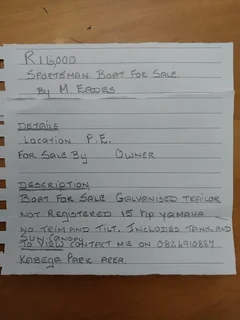 R16,000
SPORTSMAN BOAT FOR SALE
BY M. EADES
DETAILS
LOCATION P.E.
FOR SALE BY OWNER
DESCRIPTION
BOAT FOR SALE GALVANISED TRAILOR
NOT REGISTERED 15 hp YAMAHA
NO TRIM AND TILT. INCLUDES TANK AND
SUN CANOPY
TO VIEW CONTACT ME ON 0826910887
KABEGA PARK AREA.